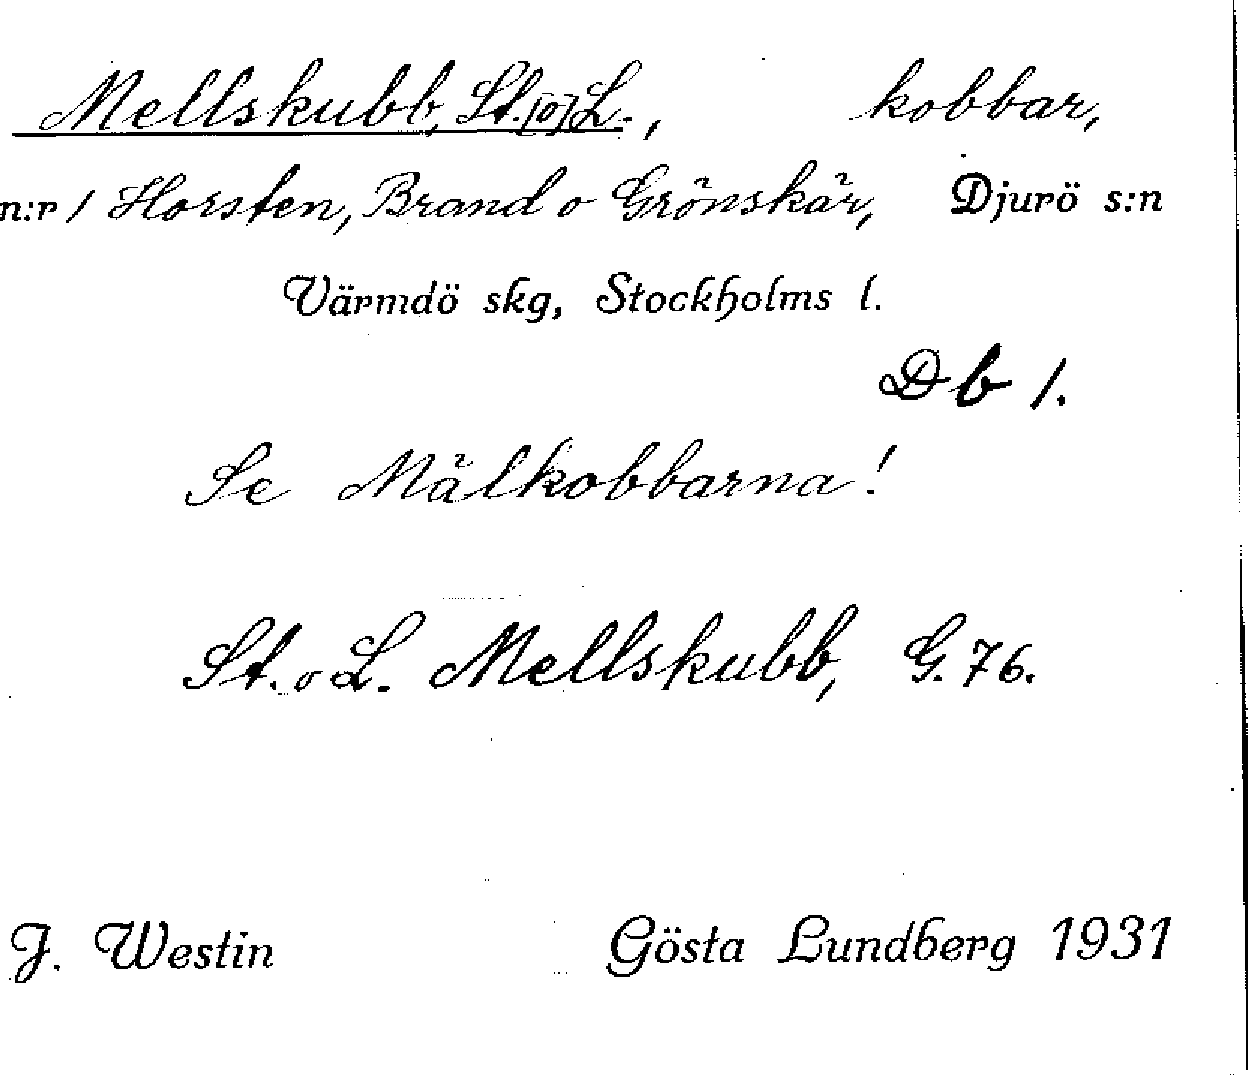 Mellskubb, St. [o] L., kobbar,
n:r 1 Horsten, Brand o Grönskär, Djurö s:n
Värmdö skg, Stockholms l.
Db 1.
Se Mälkobbarna!
St. o L. Mellskubb, G. 76.
J. Westin Gösta Lundberg 1931